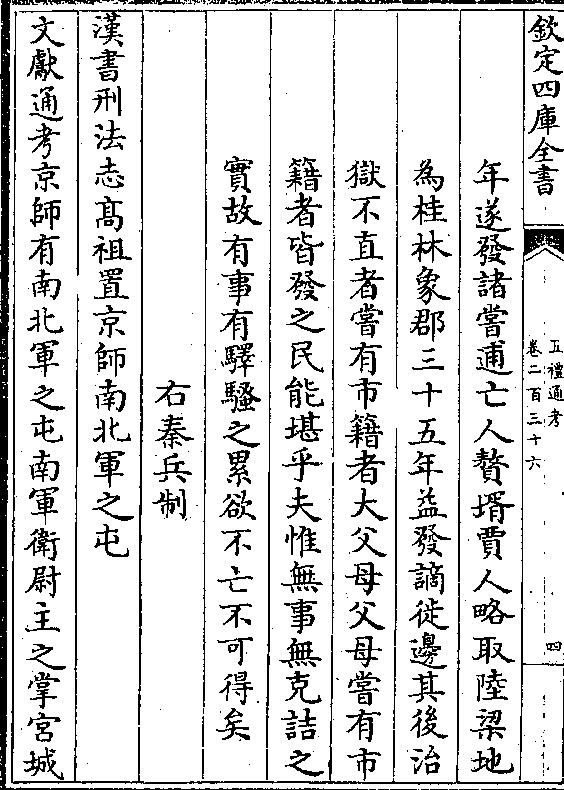 欽定四庫全書
五禮通考
卷二百三十六
四
年遂發諸嘗逋亡人贅壻賈人略取陸梁地
為桂林象郡三十五年益發謫徙邊其後治
獄不直者嘗有市籍者大父母父母嘗有市
籍者皆發之民能堪乎夫惟無事無克詰之
實故有事有驛騷之累欲不亡不可得矣
右秦兵制
漢書刑法志髙祖置京師南北軍之屯
文獻通考京師有南北軍之屯南軍衛尉主之掌宮城